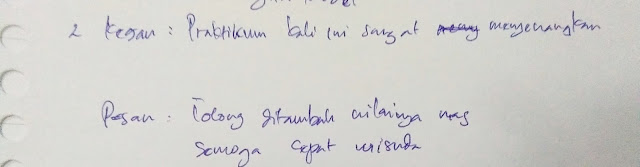 2 Kesan : Praktikum kali ini sangat menyenangkan
Pesan : Tolong ditambah nilainya mas
Semoga cepat wisuda